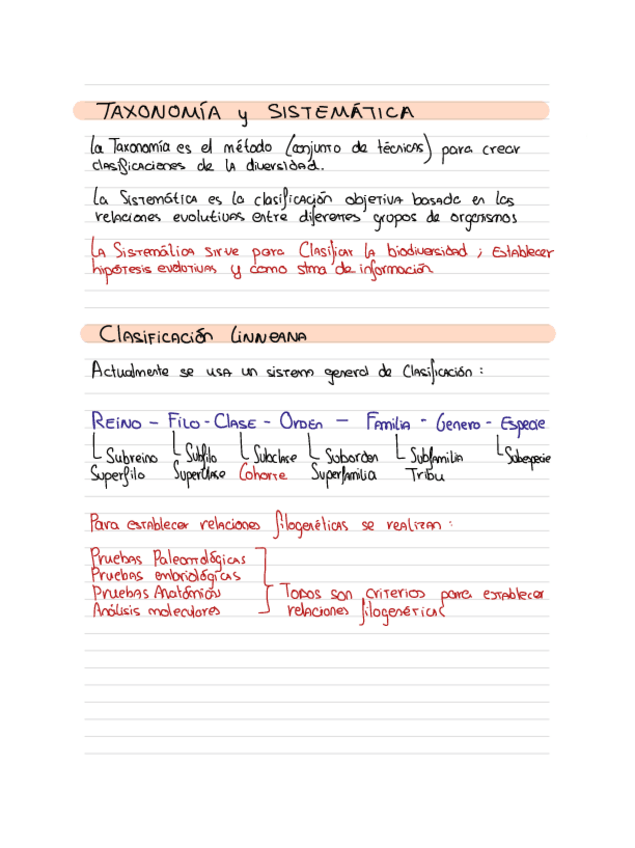 TAXONOMÍA y SISTEMÁTICA
La Taxonomía es el método (conjunto de técnicas) para crear
clasificaciones de la diversidad.
La Sistemática es la clasificación objetiva basada en las
relaciones evolutivas entre diferentes grupos de organismos
La Sistemática sirve para Clasificar la biodiversidad ; Establecer
hipótesis evolutivas y como stma de información
Clasificación Linneana
Actualmente se usa un sistema general de Clasificación :
REINO - FILO - CLASE - ORDEN - Familia - Genero - Especie
Subreino Subfilo Subclase Suborden Subfamilia Subespecie
Superfilo Superclase Cohorte Superfamilia Tribu
Para establecer relaciones filogenéticas se realizan :
Pruebas Paleontológicas
Pruebas embriológicas
Pruebas Anatómicas Todos son criterios para establecer
Análisis moleculares relaciones filogenéticas